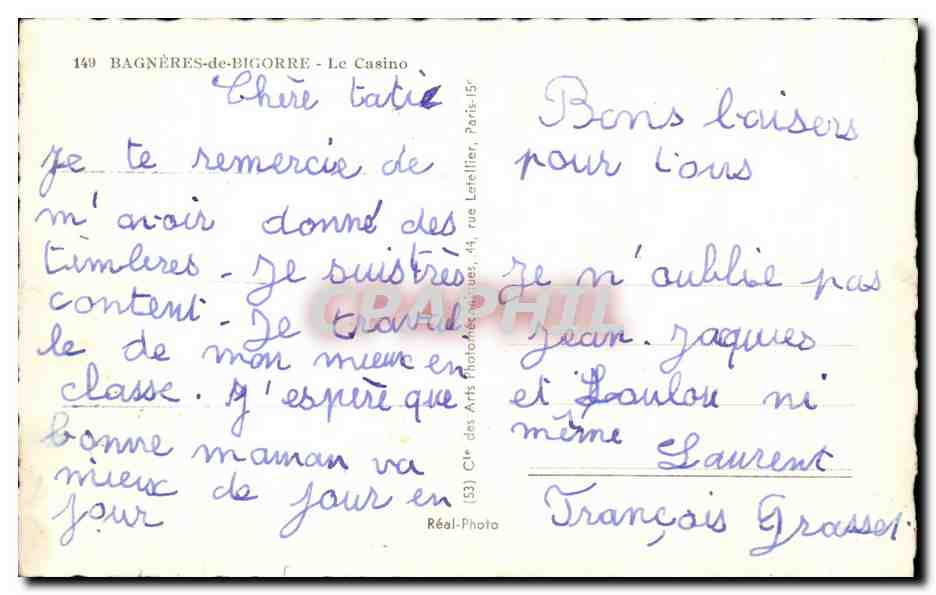 149 BAGNÈRES-de-BIGORRE - Le Casino
Chère tatie
Je te remercie de
m'avoir donné des
timbres - Je suis très
content - Je travail
le de mon mieux en
classe. J'espère que
bonne maman va
mieux de jour en
jour
(53) Cie des Arts Photomécaniques, 44, rue Letellier, Paris-15e
Réal-Photo
CPAPHIL
Bons baisers
pour tous
Je n'oublie pas
Jean. Jaques
et Loulou ni
même
Laurent
François Grasset